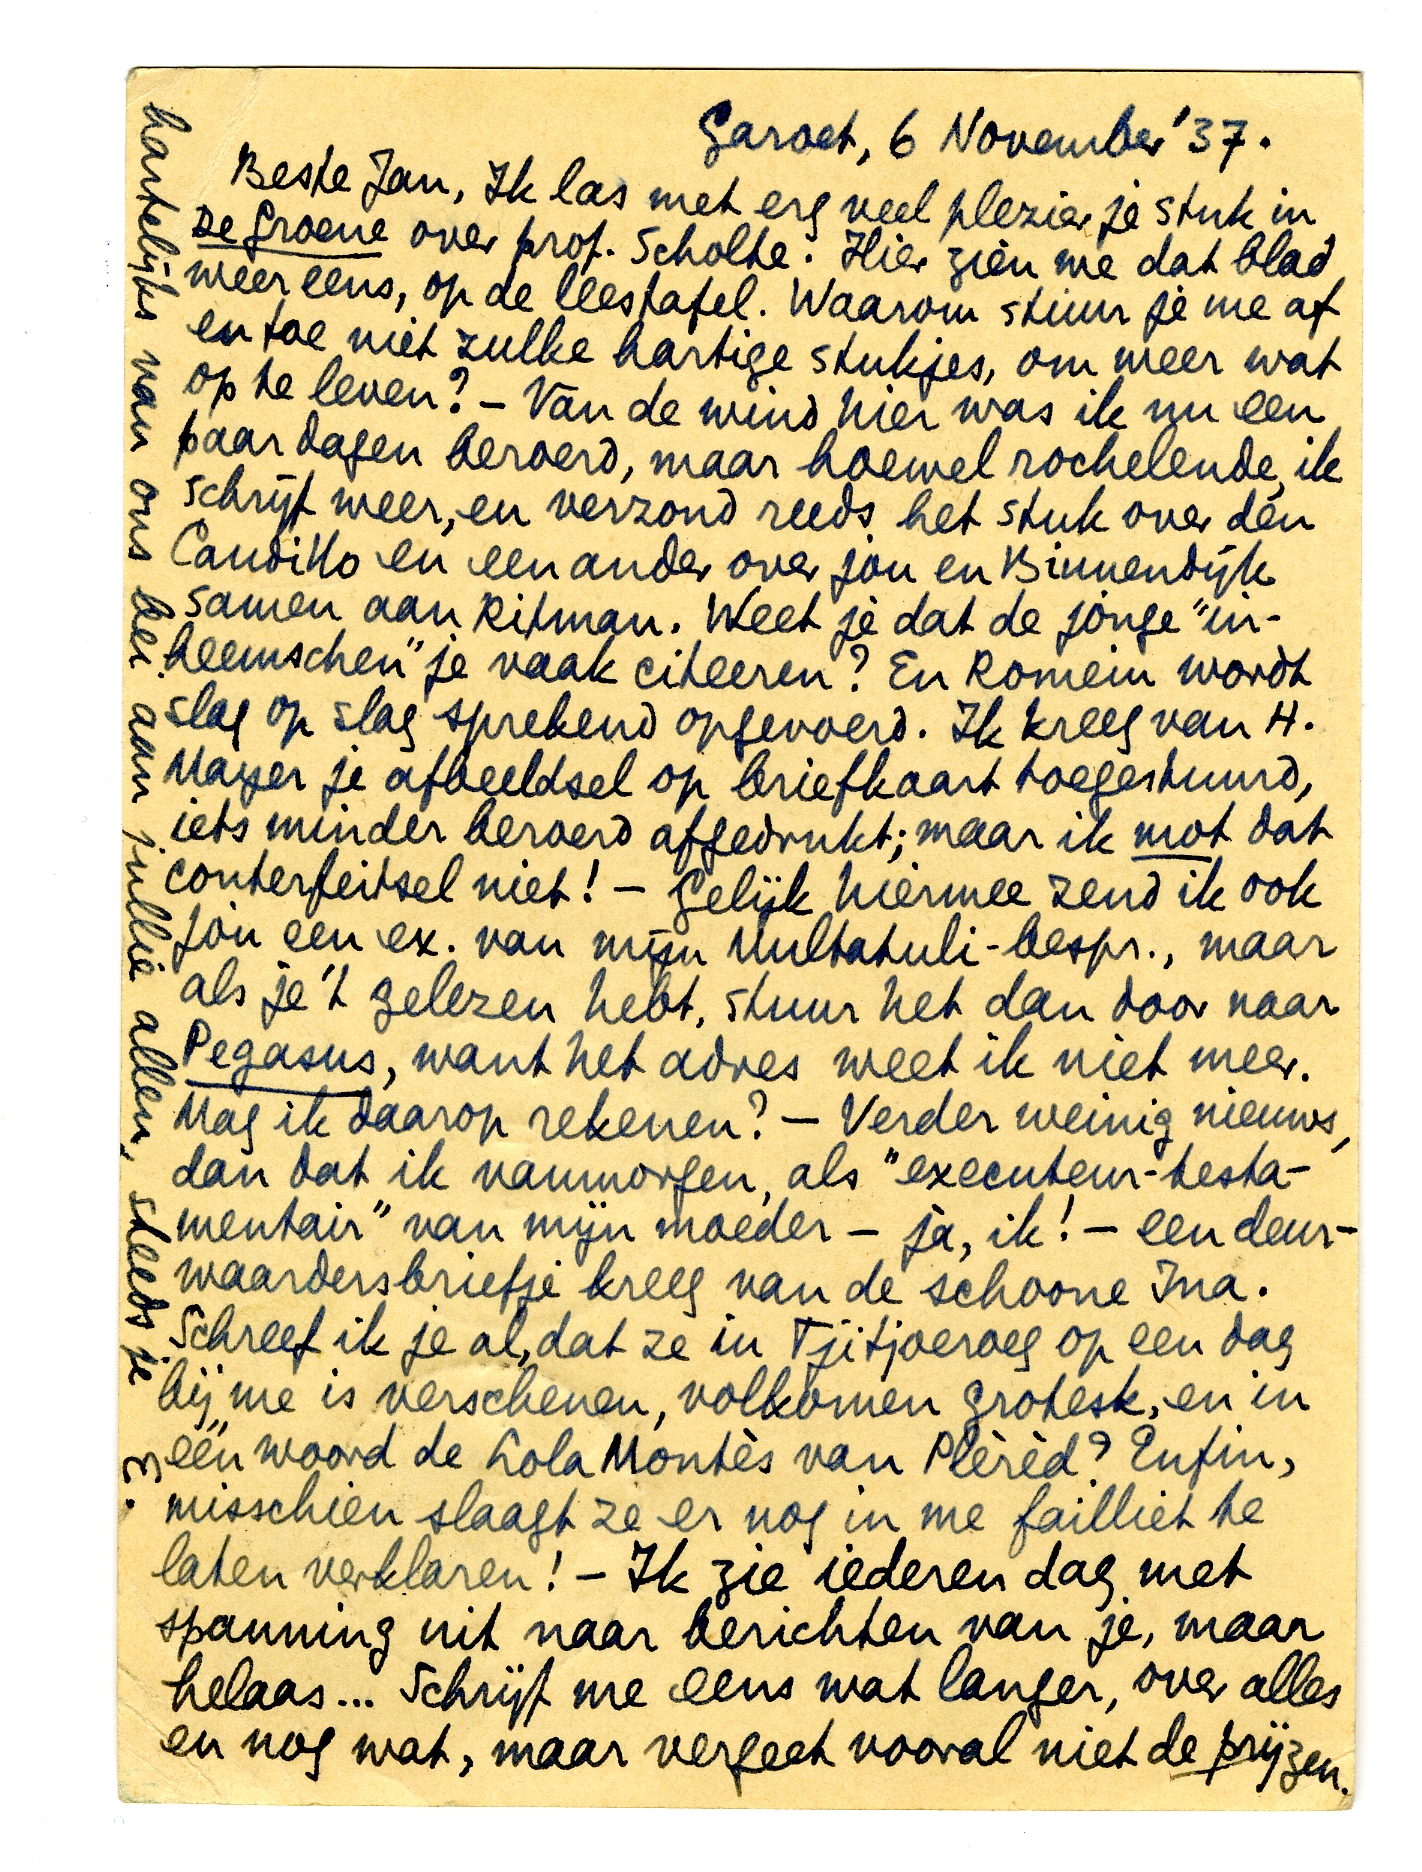 Garoet, 6 November '37.
Beste Jan, Ik las met erg veel plezier je stuk in
De Groene over prof. Scholte. Hier zien we dat blad
weer eens, op de leestafel. Waarom stuur je me af
en toe niet zulke hartige stukjes, om weer wat
op te leven? – Van de wind hier was ik nu een
paar dagen beroerd, maar hoewel rochelende, ik
schrijf weer, en verzond reeds het stuk over den
Candide en een ander over jou en Binnendijk
samen aan Ritman. Weet je dat de jonge "in-
heemschen" je vaak citeeren? En Romein wordt
slag op slag sprekend opgevoerd. Ik kreeg van H.
Mayer je afbeeldsel op briefkaart toegestuurd,
iets minder beroerd afgedrukt; maar ik mot dat
conterfeitsel niet! – Gelijk hiermee zend ik ook
jou een ex. van mijn Multatuli-bespr., maar
als je 't gelezen hebt, stuur het dan door naar
Pegasus, want het adres weet ik niet meer.
Mag ik daarop rekenen? – Verder weinig nieuws,
dan dat ik vanmorgen, als "executeur-testa-
mentair" van mijn moeder – ja, ik! – een deur-
waardersbriefje kreeg van de schoone Ina.
Schreef ik je al, dat ze in Tjitjoeroeg op een dag
bij me is verschenen, volkomen grotesk, en in
één woord de Lola Montès van Plèrèd? Enfin,
misschien slaagt ze er nog in me failliet te
laten verklaren! – Ik zie iederen dag met
spanning uit naar berichten van je, maar
helaas... Schrijf me eens wat langer, over alles
en nog wat, maar vergeet vooral niet de prijzen.
hartelijks van ons bei aan jullie allen, steeds je
E.